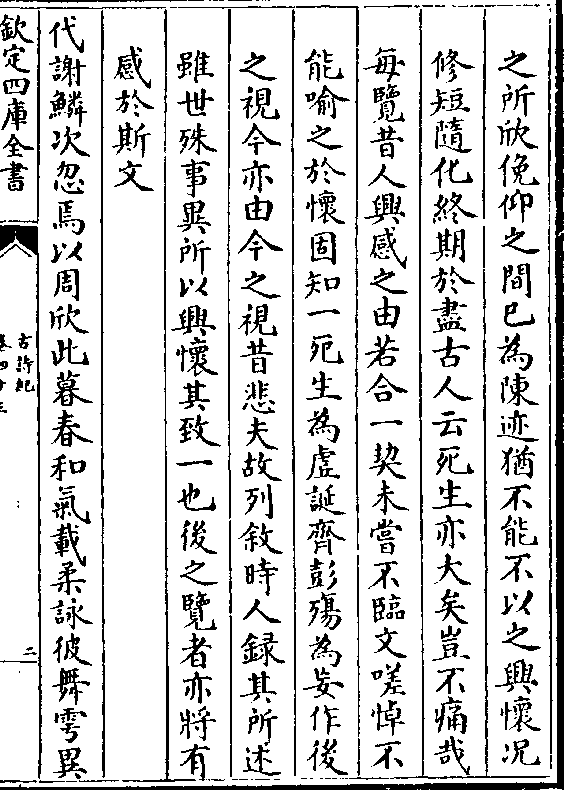 之所欣俛仰之間已為陳迹猶不能不以之興懷况
修短隨化終期於盡古人云死生亦大矣豈不痛哉
每覽昔人興感之由若合一契未嘗不臨文嗟悼不
能喻之於懷固知一死生為虛誕齊彭殤為妄作後
之視今亦由今之視昔悲夫故列敘時人録其所述
雖世殊事異所以興懷其致一也後之覽者亦將有
感於斯文
代謝鱗次忽焉以周欣此暮春和氣載柔詠彼舞雩異
欽定四庫全書
古詩紀
卷四十三
二